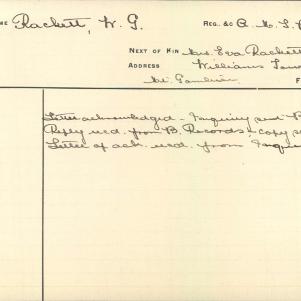 ME Rackett, W. G. REG. &C
NEXT OF KIN Mrs. Eva Rackett
ADDRESS Williams
Mt. Gambier. F
Letter acknowledged - Inquiry sent B
Reply recd. from B. Records - copy s
Letter of ack. recd. from Inqui